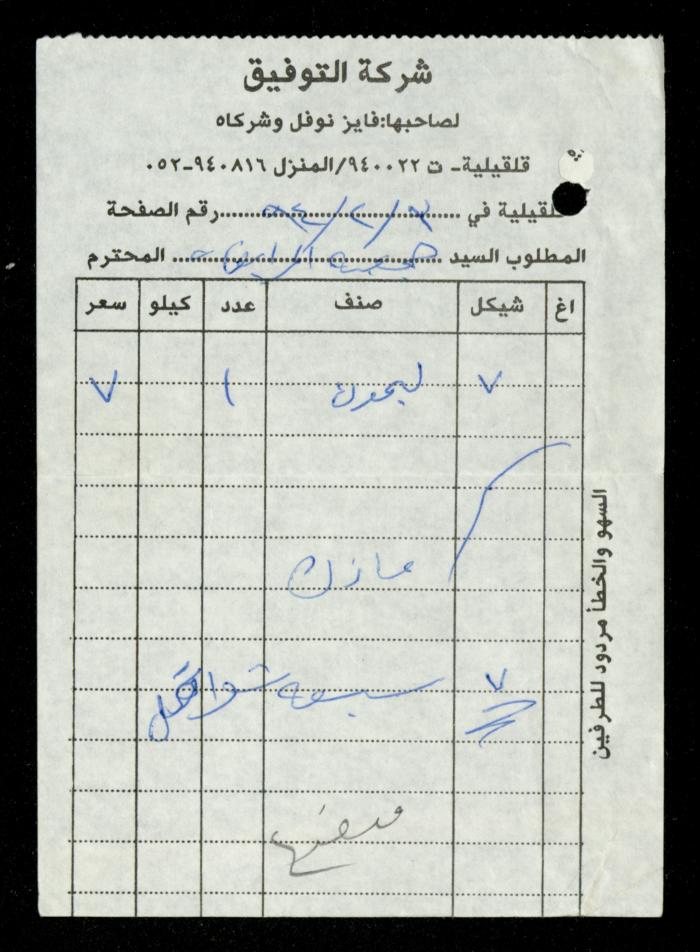 شركة التوفيق
لصاحبها:فايز نوفل وشركاه
قلقيلية- ت ٩٤٠٠٢٢/المنزل ٩٤٠٨١٦-٠٥٢
قلقيلية في ........ رقم الصفحة
المطلوب السيد جمعية ........ المحترم
اغ شيكل صنف عدد كيلو سعر
٧ ليمون ١ ٧
٧ سبعة شواقل
السهو والخطأ مردود للطرفين